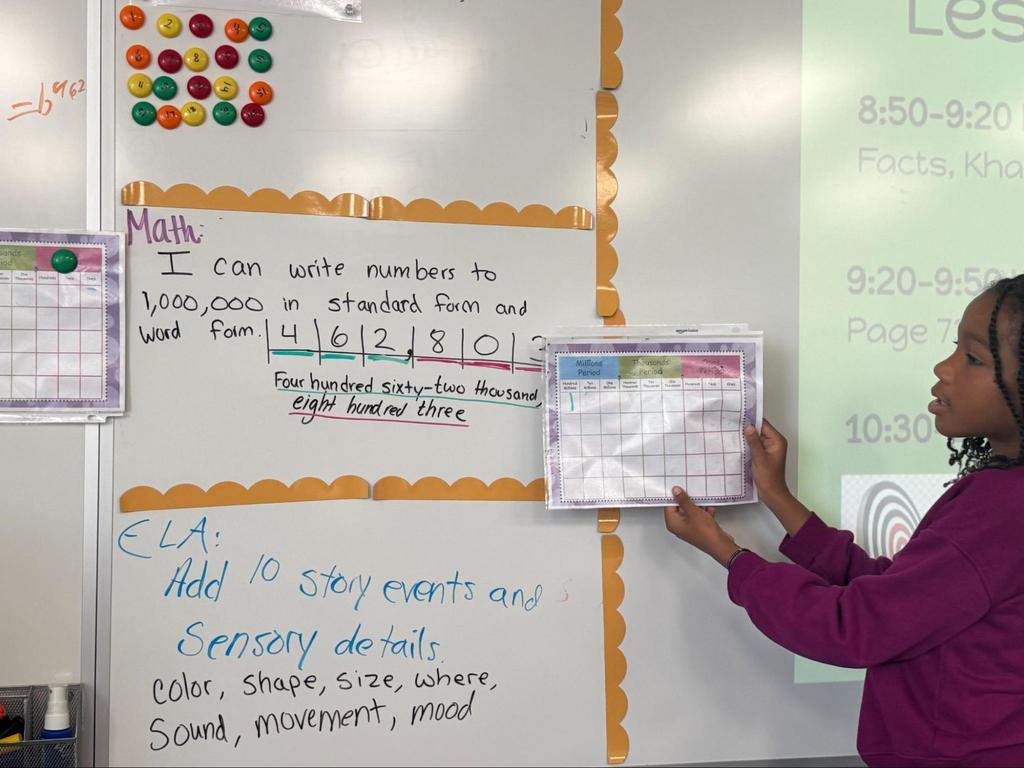 Math:
I can write numbers to
1,000,000 in standard form and
word form. 4 6 2, 8 0 3
Four hundred sixty-two thousand,
eight hundred three
Millions Period Thousands Period
Hundred Millions Ten Millions One Millions Hundred Thousands Ten Thousands One Thousands Hundreds Tens Ones
1
ELA:
Add 10 story events and
Sensory details.
color, shape, size, where,
Sound, movement, mood
Les
8:50-9:20
Facts, Kha
9:20-9:50
Page 7
10:30